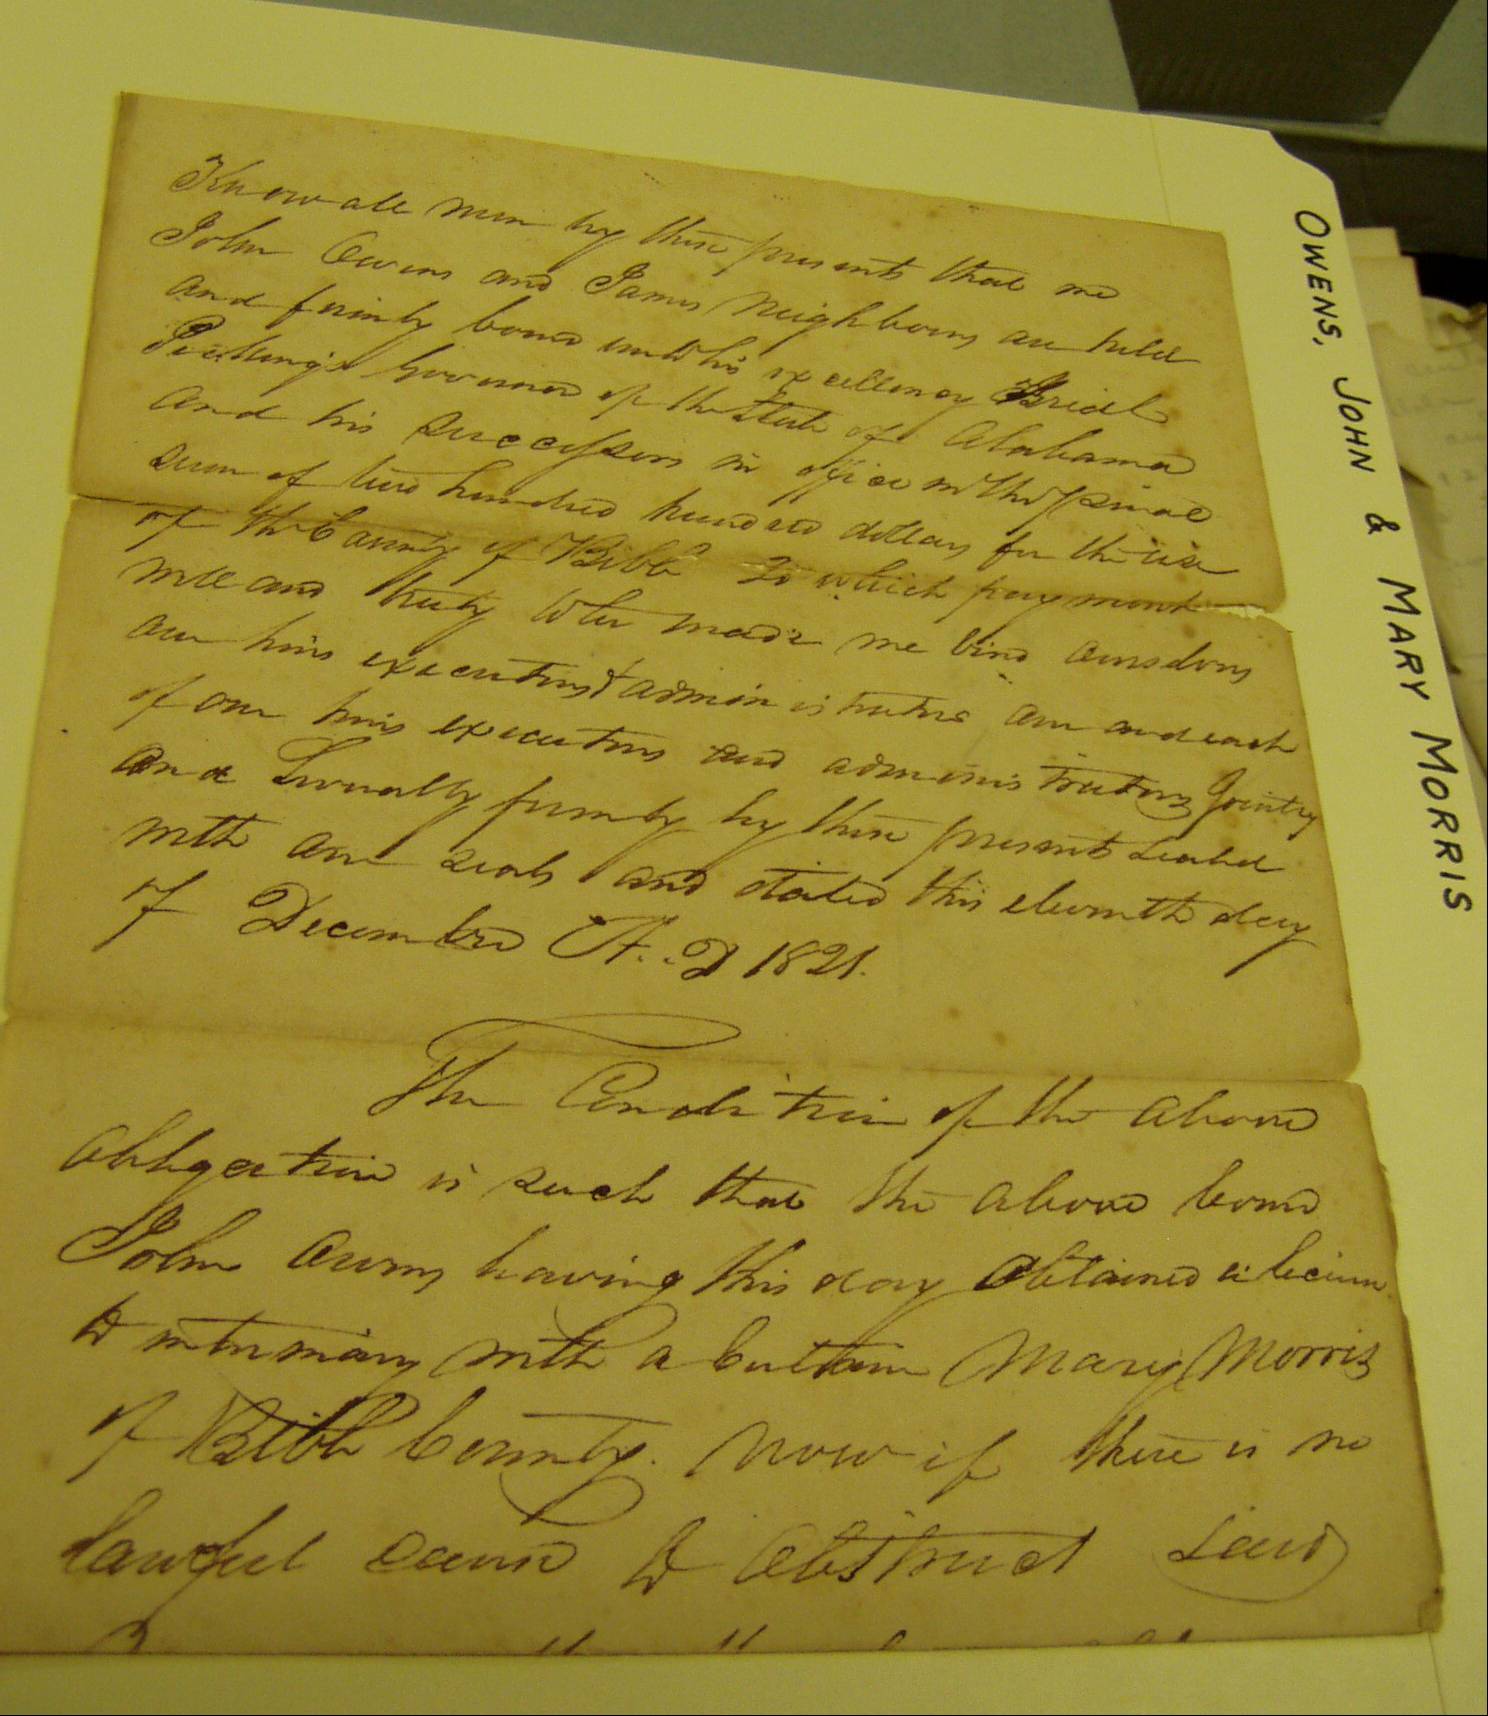 Know all men by these presents that we
John Owens and James Neighbours are held
and firmly bound unto his excellency Isriel
Pickings Governor of the State of Alabama
and his successors in office in the penal
sum of two hundred hundred dollars for the use
of the County of Bibb To which payment
well and truly to be made we bind ourselves
our heirs executors & administrators our and each
of our heirs executors and administrators Jointly
and Severally firmly by these presents sealed
with our seals and dated this eleventh day
of December A.. D 1821.
The Condition of the above
obligation is such that the above bound
John Owens having this day obtained a licence
to intermarry with a certain Mary Morris
of Bibb County. Now if there is no
lawful cause to obstruct said
OWENS, JOHN & MARY MORRIS